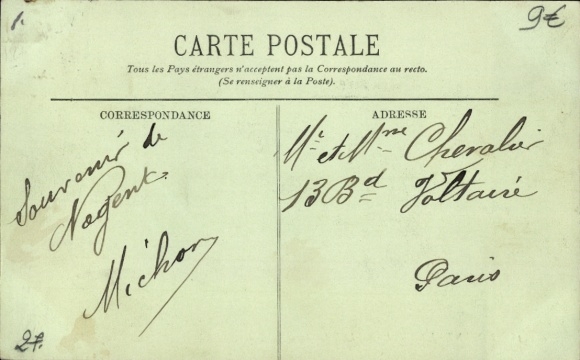 1.
9€
CARTE POSTALE
Tous les Pays étrangers n'acceptent pas la Correspondance au recto.
(Se renseigner à la Poste).
CORRESPONDANCE
ADRESSE
Souvenir de
Nogent.
Michon
Mr et Mme Chevalier
13 Bd Voltaire
Paris
27.